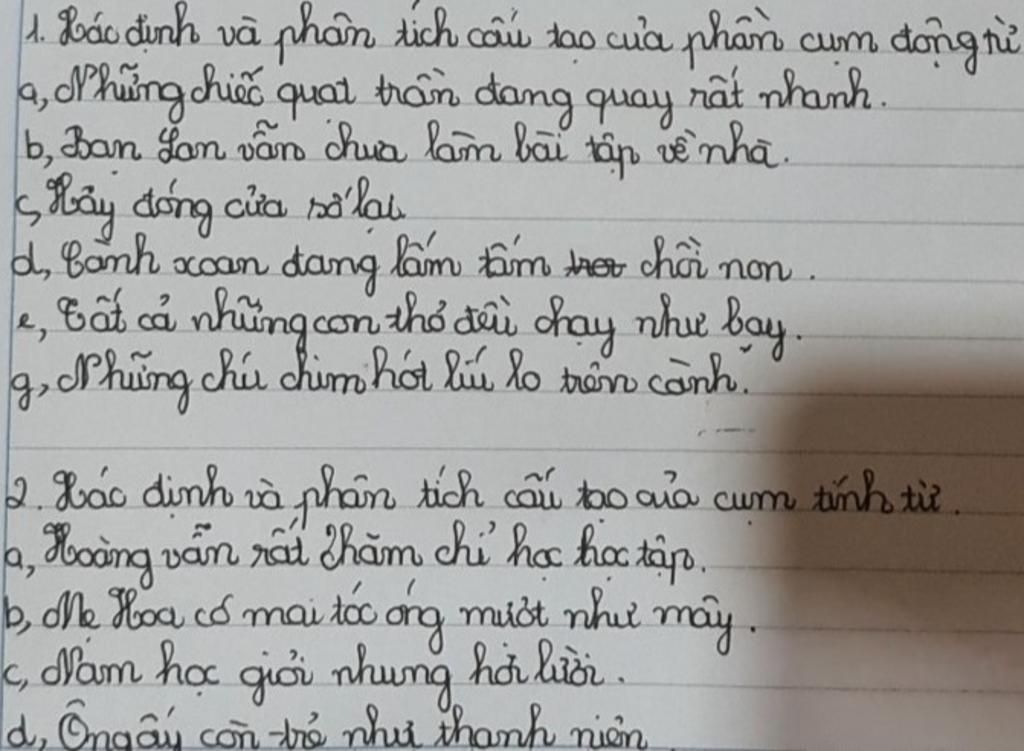 1. Xác định và phân tích cấu tạo của phần cụm động từ
a, Những chiếc quạt trần đang quay rất nhanh.
b, Bạn Lan vẫn chưa làm bài tập về nhà.
c, Hãy đóng cửa sổ lại
d, Cành xoan đang lấm tấm chồi non.
e, Tất cả những con thỏ đều chạy như bay.
g, Những chú chim hót líu lo trên cành.
2. Xác định và phân tích cấu tạo của cụm tính từ.
a, Hoàng vẫn rất chăm chỉ học học tập.
b, Mẹ Hoa có mai tóc óng mượt như mây.
c, Nam học giỏi nhưng hơi lười.
d, Ông ấy còn trẻ như thanh niên